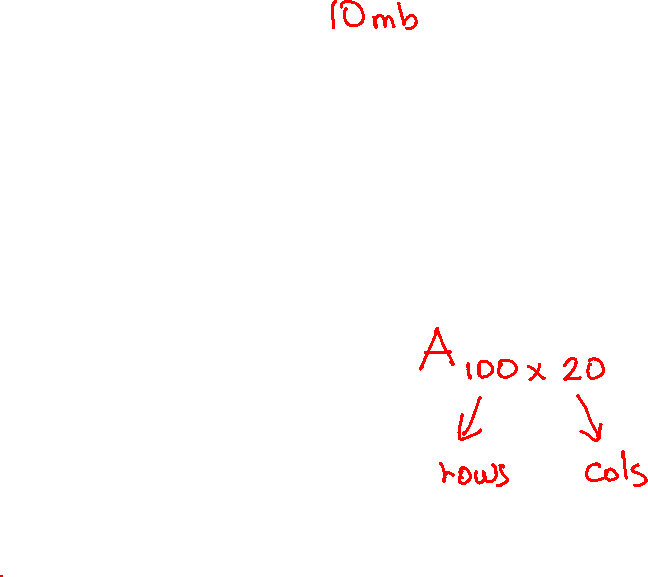 10mb
A 100 x 20
rows cols